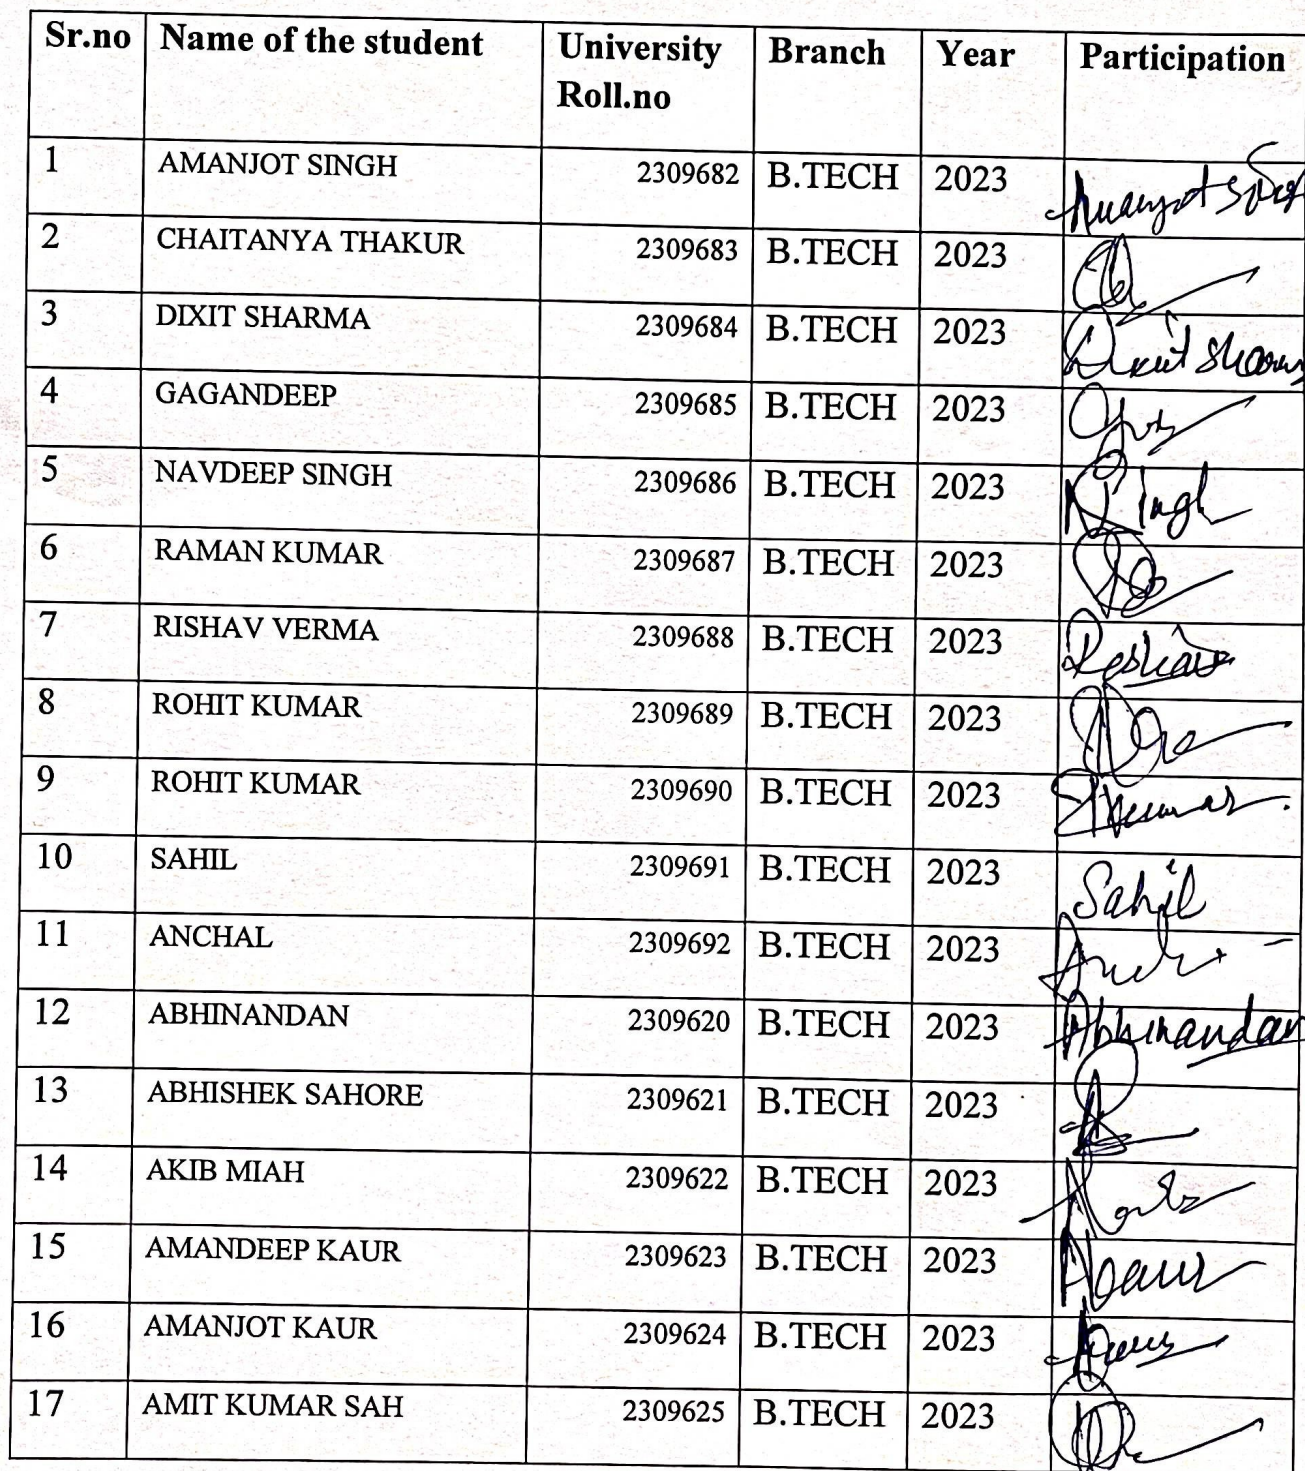 Sr.no Name of the student University Roll.no Branch Year Participation
1 AMANJOT SINGH 2309682 B.TECH 2023 Amanjot Singh
2 CHAITANYA THAKUR 2309683 B.TECH 2023
3 DIXIT SHARMA 2309684 B.TECH 2023 Dixit Sharma
4 GAGANDEEP 2309685 B.TECH 2023
5 NAVDEEP SINGH 2309686 B.TECH 2023
6 RAMAN KUMAR 2309687 B.TECH 2023
7 RISHAV VERMA 2309688 B.TECH 2023
8 ROHIT KUMAR 2309689 B.TECH 2023
9 ROHIT KUMAR 2309690 B.TECH 2023
10 SAHIL 2309691 B.TECH 2023 Sahil
11 ANCHAL 2309692 B.TECH 2023
12 ABHINANDAN 2309620 B.TECH 2023 Abhinandan
13 ABHISHEK SAHORE 2309621 B.TECH 2023
14 AKIB MIAH 2309622 B.TECH 2023
15 AMANDEEP KAUR 2309623 B.TECH 2023
16 AMANJOT KAUR 2309624 B.TECH 2023
17 AMIT KUMAR SAH 2309625 B.TECH 2023